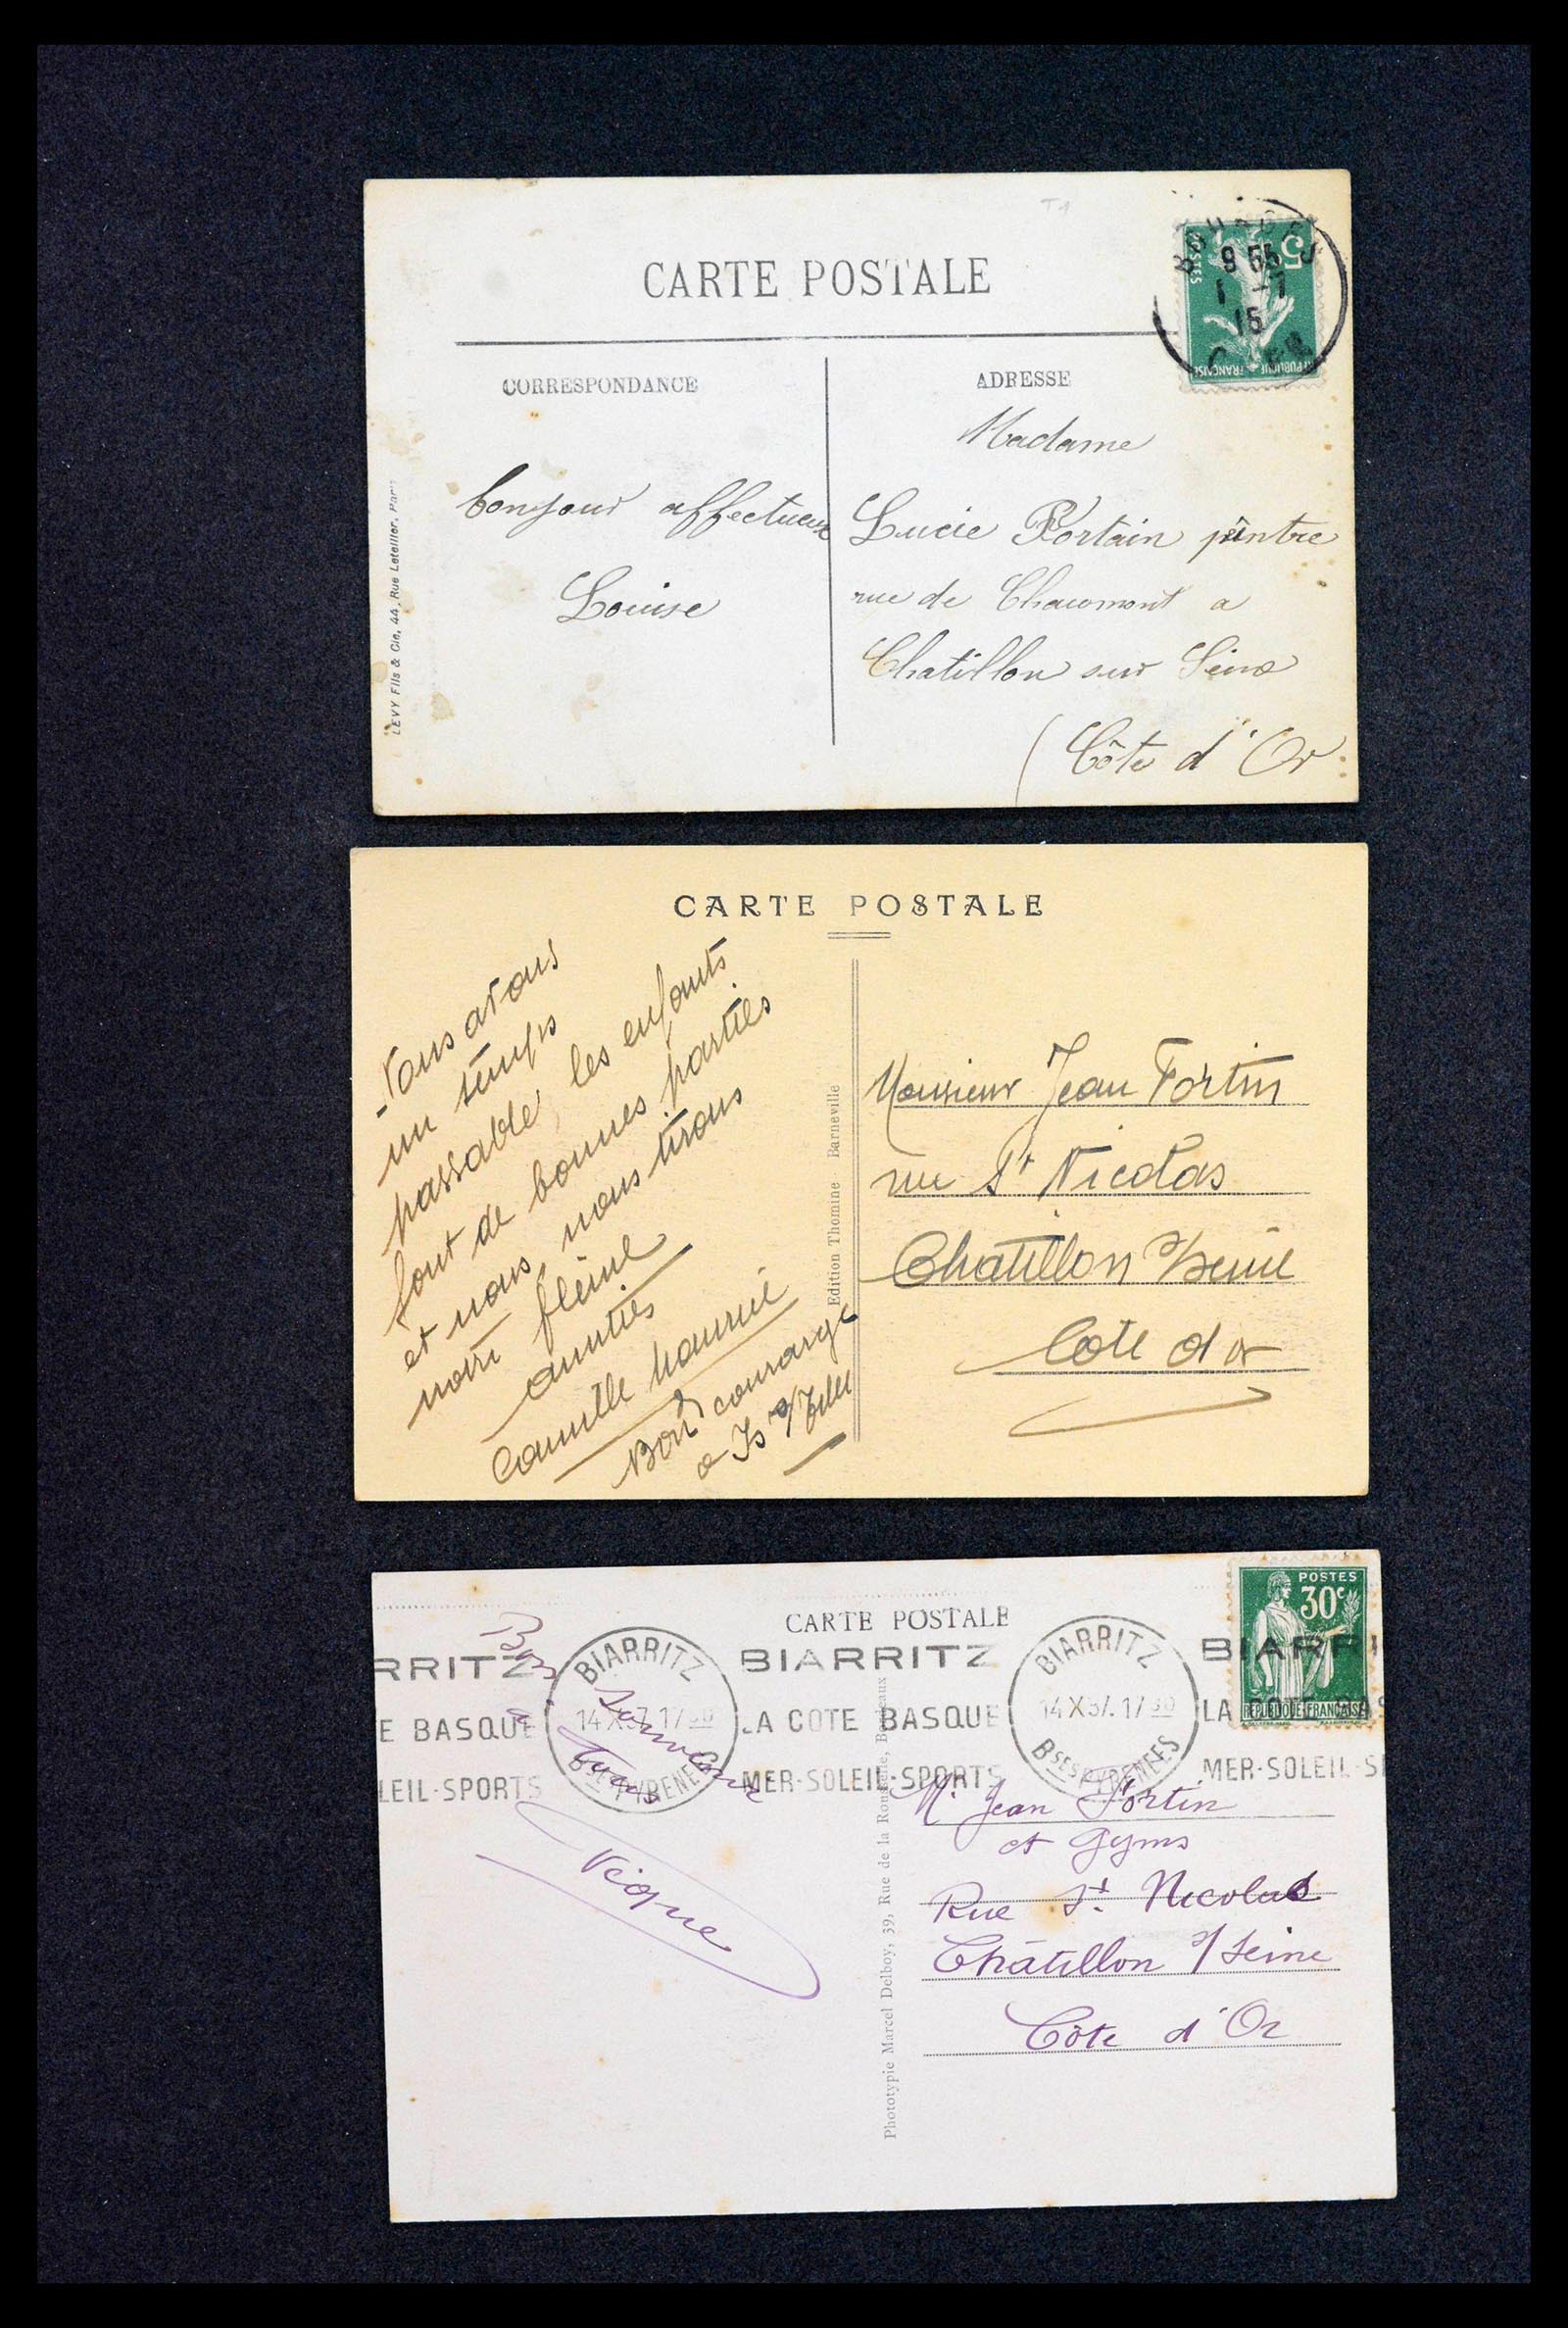 T1
CARTE POSTALE
BOURGES
9 55
1 -7
15
5
POSTES
REPUBLIQUE FRANÇAISE
CORRESPONDANCE
ADRESSE
bonjour affectueux
Louise
Madame
Lucie Fortain peintre
rue de Chaumont a
Chatillon sur Seine
(Côte d'Or
LEVY Fils & Cie, 44, Rue Letellier, Paris
CARTE POSTALE
Nous avons
un temps
passable les enfants
font de bonnes parties
et nous nous tirons
notre flème
amitiés
Camille
Bon courage
a
Edition Thomine Barneville
Monsieur Jean Fortin
rue St Nicolas
Chatillon s/Seine
Cote d or
CARTE POSTALE
POSTES
30c
REPUBLIQUE FRANÇAISE
RRITZ
E BASQUE
LEIL-SPORTS
BIARRITZ
14 X 37. 17 30
Bses PYRENEES
BIARRITZ
LA COTE BASQUE
MER-SOLEIL-SPORTS
BIARRITZ
14 X 37. 17 30
Bses PYRENEES
BIARRI
LA COTE BAS
MER-SOLEIL-S
Bon souvenir
a tous
Vèque
Phototypie Marcel Delboy, 39, Rue de la Rousselle, Bordeaux
M. Jean Fortin
et
Rue St. Nicolas
Châtillon s/Seine
Côte d'Or